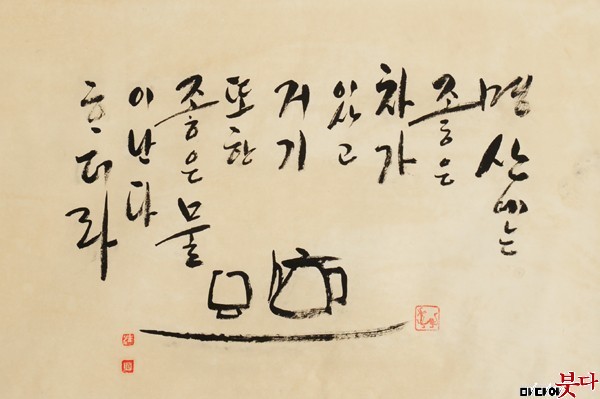 명산에는
좋은
차가
있고
거기
또한
좋은물
이난다
하더라
붓다